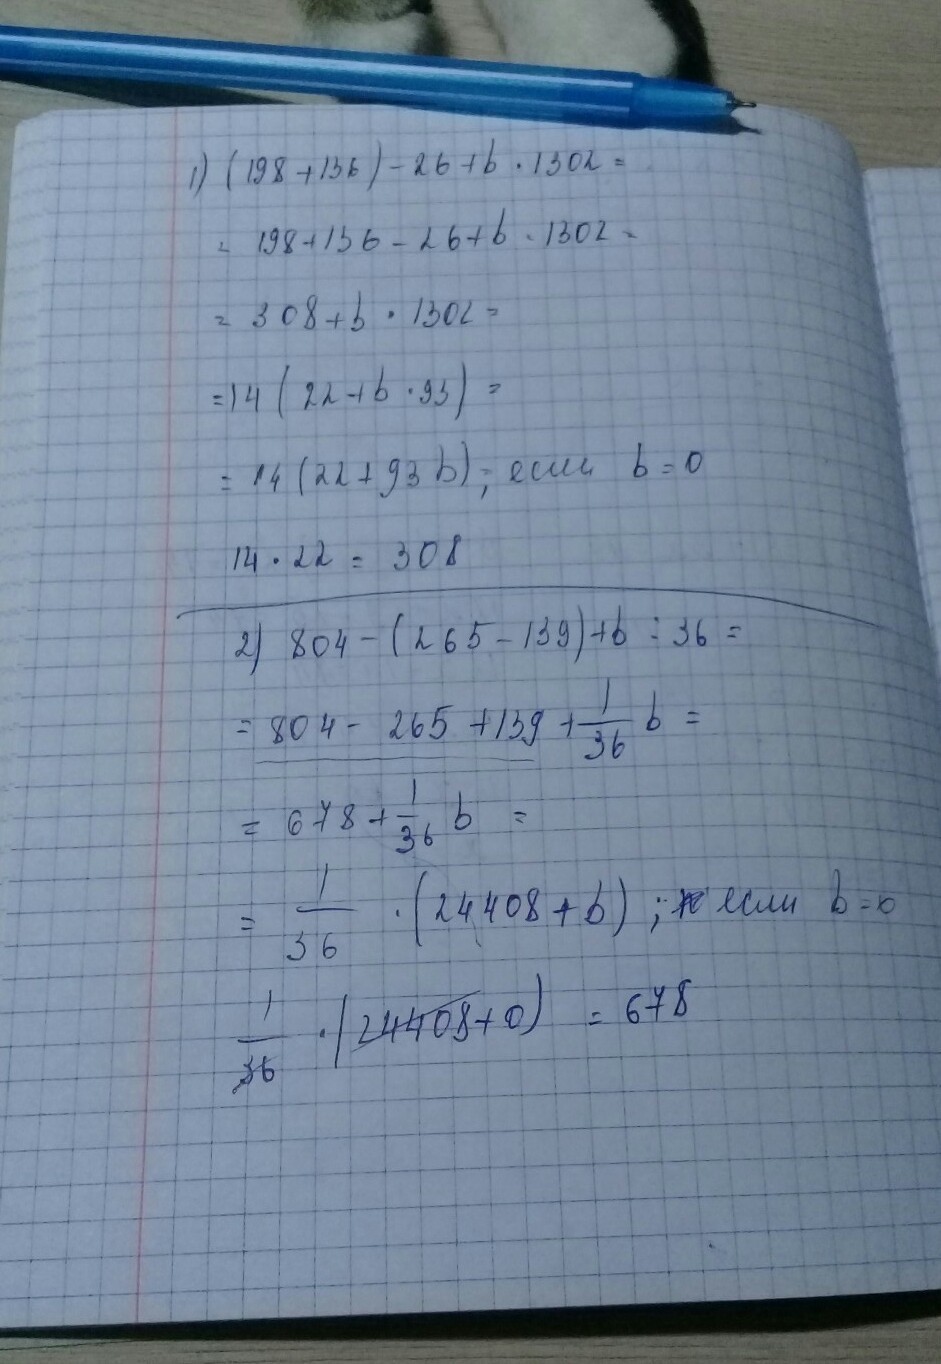 1) (198+136)-26+b·1302=
= 198+136-26+b·1302=
= 308+b·1302=
=14(22+b·93)=
= 14(22+93b); если b=0
14·22 = 308
2) 804-(265-139)+b:36=
= 804-265+139+1/36 b=
= 678+1/36 b =
= 1/36 ·(24408+b); если b=0
1/36 ·(24408+0) = 678